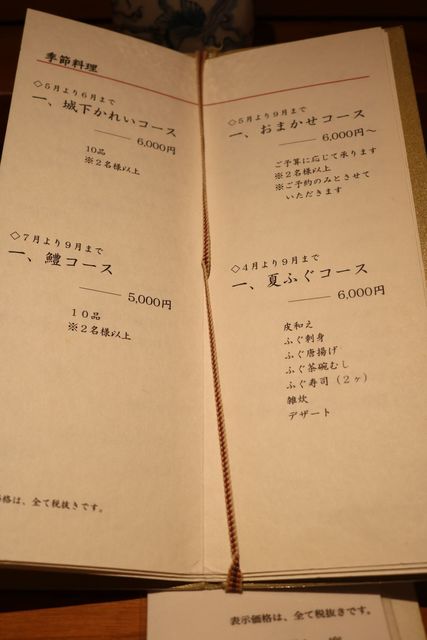 季節料理
◇5月より6月まで
一、城下かれいコース
6,000円
10品
※2名様以上
◇7月より9月まで
一、鱧コース
5,000円
10品
※2名様以上
価格は、全て税抜きです。
◇5月より9月まで
一、おまかせコース
6,000円〜
ご予算に応じて承ります
※2名様以上
※ご予約のみとさせて
いただきます
◇4月より9月まで
一、夏ふぐコース
6,000円
皮和え
ふぐ刺身
ふぐ唐揚げ
ふぐ茶碗むし
ふぐ寿司（2ヶ）
雑炊
デザート
表示価格は、全て税抜きです。